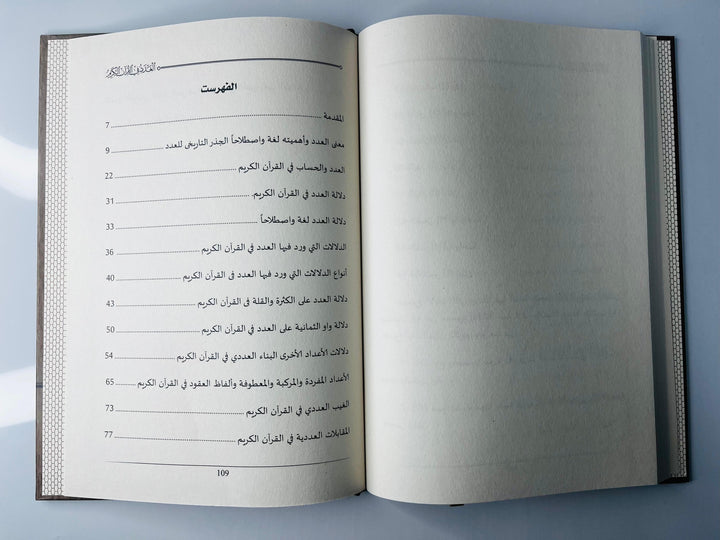 العدد في القرآن الكريم
الفهرست
المقدمة ........ 7
معنى العدد وأهميته لغة واصطلاحاً الجذر التاريخي للعدد ........ 9
العدد والحساب في القرآن الكريم ........ 22
دلالة العدد في القرآن الكريم. ........ 31
دلالة العدد لغة واصطلاحاً ........ 33
الدلالات التي ورد فيها العدد في القرآن الكريم ........ 36
أنواع الدلالات التي ورد فيها العدد في القرآن الكريم ........ 40
دلالة العدد على الكثرة والقلة في القرآن الكريم ........ 43
دلالة واو الثمانية على العدد في القرآن الكريم ........ 50
دلالات الأعداد الأخرى البناء العددي في القرآن الكريم ........ 54
الأعداد المفردة والمركبة والمعطوفة وألفاظ العقود في القرآن الكريم ........ 65
الغيب العددي في القرآن الكريم ........ 73
المقابلات العددية في القرآن الكريم ........ 77
109